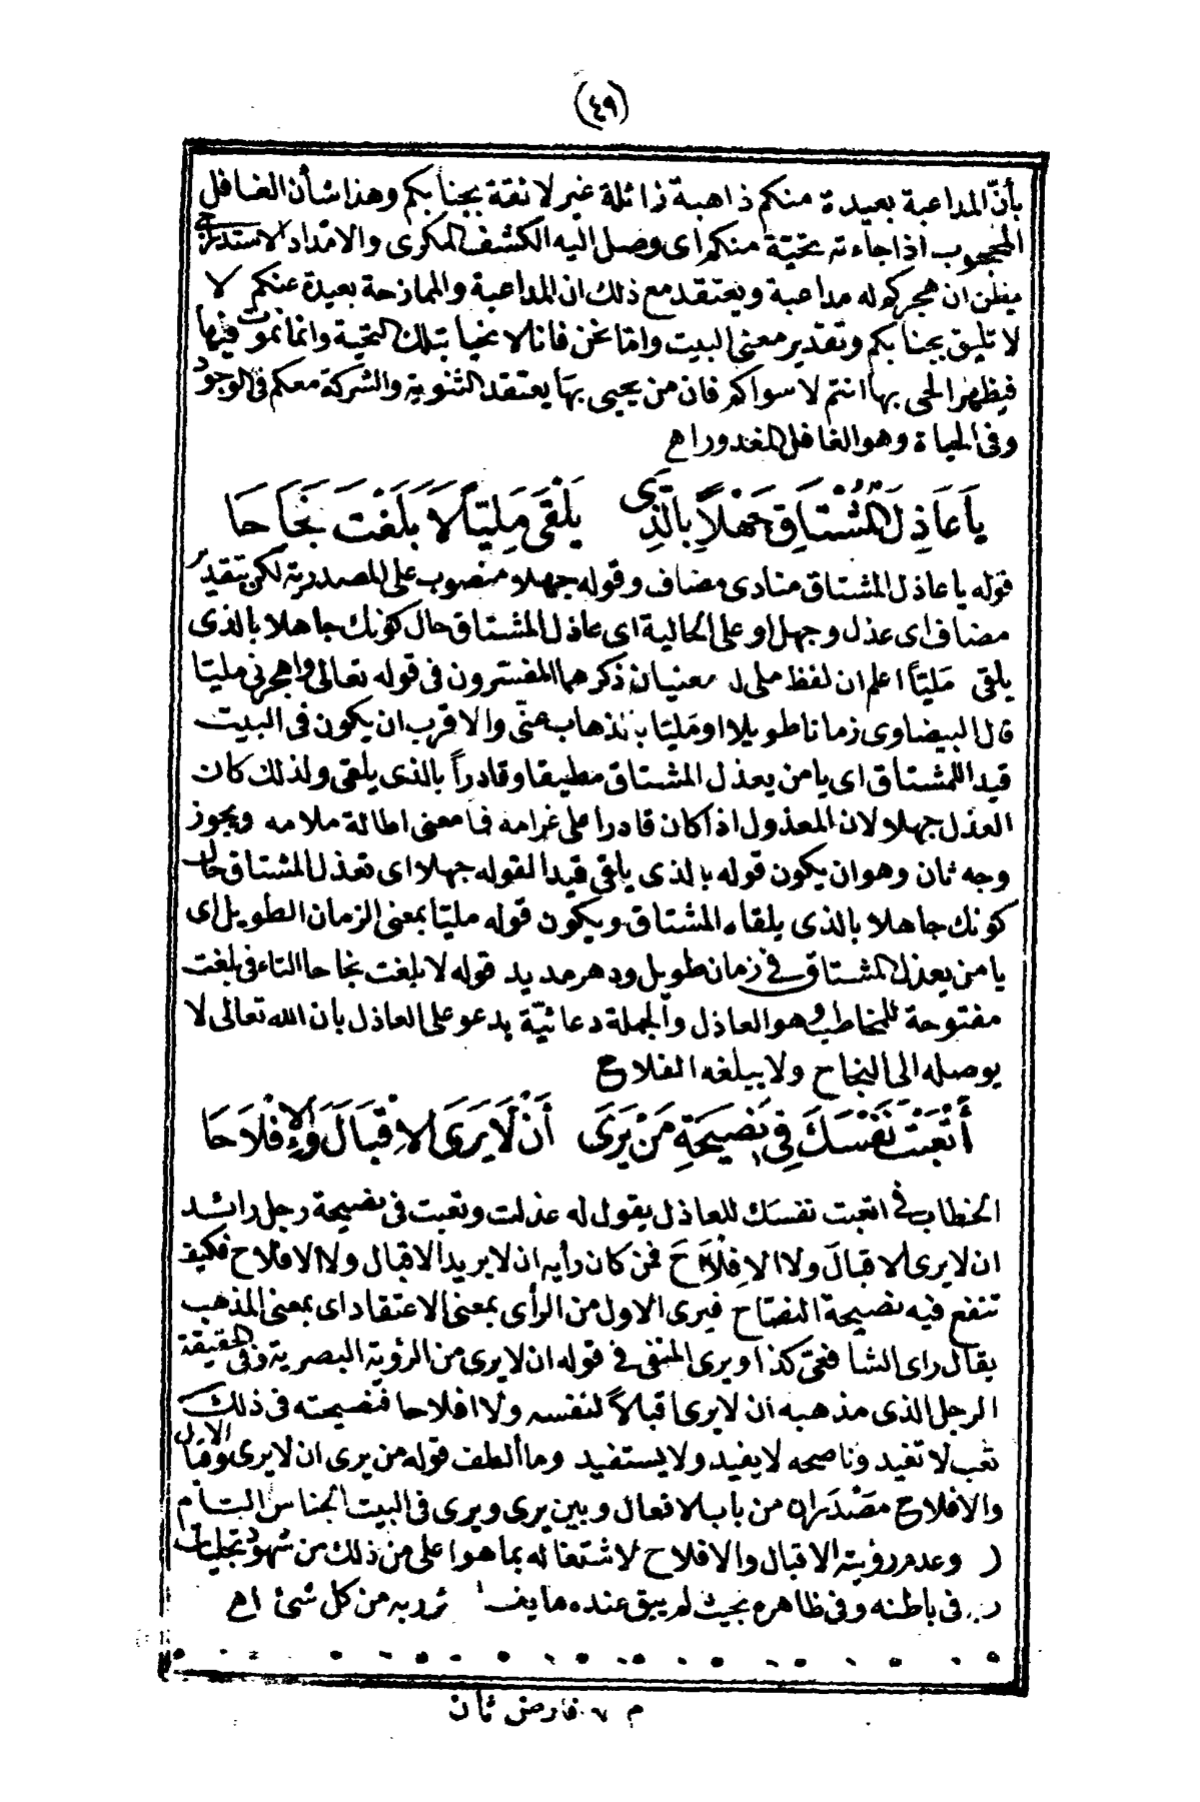 (٤٩)
بأنّ المداعبة بعيدة منكم ذاهبة زائلة غير لائقة بجنابكم وهذا شأن الغافل
المحجوب اذا جاءته تحيّة منكم اى وصل اليه الكشف المكرى والامداد الاستدراجى
يظن ان هجركم له مداعبة ويعتقد مع ذلك ان المداعبة والممازحة بعيدة عنكم لا
لا تليق بجنابكم وتقدير معنى البيت وامّا نحن فانا لا نحيا بتلك التحية وانما نموت فيها
فيظهر الحى بها انتم لا سواكم فان من يحيى بها يعتقد الثنوية والشركة معكم فى الوجود
وفى الحياة وهو الغافل المغدور اهـ
يَا عَاذِلَ الْمُشْتَاقِ جَهْلاً بِالَّذِى يَلْقَى مَلِيّاً لَا بَلَغْتَ نَجَاحَا
قوله يا عاذل المشتاق منادى مضاف وقوله جهلا منصوب على المصدرية لكن بتقدير
مضاف اى عذل وجهل او على الحالية اى عاذل المشتاق حال كونك جاهلا بالذى
يلقى مَليّاً اعلم ان لفظ ملى له معنيان ذكرهما المفسّرون فى قوله تعالى واهجرنى مليّا
قال البيضاوى زمانا طويلا او مَليّا بالذهاب عنّى والاقرب ان يكون فى البيت
قيدا للمشتاق اى يا من يعذل المشتاق مطيقا وقادراً بالذى يلقى ولذلك كان
العذل جهلا لان المعذول اذا كان قادرا على غرامه فما معنى اطالة ملامه ويجوز
وجه ثان وهو ان يكون قوله بالذى يلقى قيدا لقوله جهلا اى تعذل المشتاق حال
كونك جاهلا بالذى يلقاه المشتاق ويكون قوله مليّا بمعنى الزمان الطويل اى
يا من يعذل المشتاق فى زمان طويل ودهر مديد قوله لا بلغت نجاحا التاء فى بلغت
مفتوحة للمخاطب وهو العاذل والجملة دعائيّة يدعو على العاذل بان الله تعالى لا
يوصله الى النجاح ولا يبلغه الفلاح
أَتْعَبْتَ نَفْسَكَ فِى نَصِيحَةِ مَنْ يَرَى أَنْ لَا يَرَى الاِقْبَالَ وَالإِفْلَاحَا
الخطاب فى اتعبت نفسك للعاذل يقول له عذلت وتعبت فى نصيحة رجل رائد
ان لا يرى الاقبالَ ولا الاِفْلَاحَ فمن كان رأيه ان لا يريد الاقبال ولا الافلاح فكيف
تنفع فيه نصيحة النصّاح فيرى الاول من الرأى بمعنى الاعتقاد اى بمعنى المذهب
يقال راى الشافعىّ كذا ويرى المنفى فى قوله ان لا يرى من الرؤية البصرية وفى الحقيقة
الرجل الذى مذهبه ان لا يرى اقبالاً لنفسه ولا افلاحا فنصيحته فى ذلك
تعب لا تفيد وناصحه لا يفيد ولا يستفيد وما ألطف قوله من يرى ان لا يرى
والافلاح مَصْدَران من باب الافعال وبين يرى ويرى فى البيت الجناس التام
( وعدم رؤيته الاقبال والافلاح لاشتغاله بما هو اعلى من ذلك من شهود تجليات
فى باطنه وفى ظاهره بحيث لم يبق عنده من كل شئ اهـ
م ٧ فارض ثان